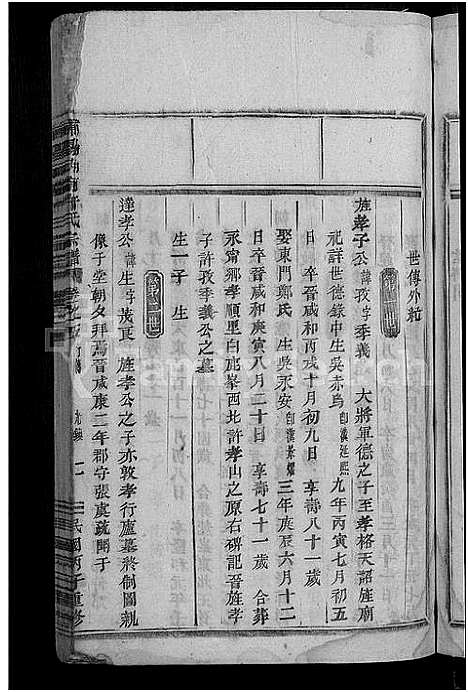 世傳外紀
第一世
旌孝子公諱孜字季義 大將軍德之子至孝格天詔旌廟
祀詳世德錄中生吳赤烏卽漢延熙九年丙寅七月初五
日 卒晉咸和丙戌十月初九日 享壽八十一歲
娶東門鄭氏 生吳永安卽漢景耀三年庚辰六月十二
日 卒晉咸和庚寅八月二十日 享壽七十一歲 合葬
永甯鄉孝順里白鹿峯西北許孝山之原右碑記晉旌孝
子許孜季義公之墓
生一子 生
第二世
達孝公諱生字茂良 旌孝公之子亦敦孝行廬墓終制圖親
像于堂朝夕拜焉晉咸康二年郡守張虞疏聞于
氏宗譜
民國丙子重修